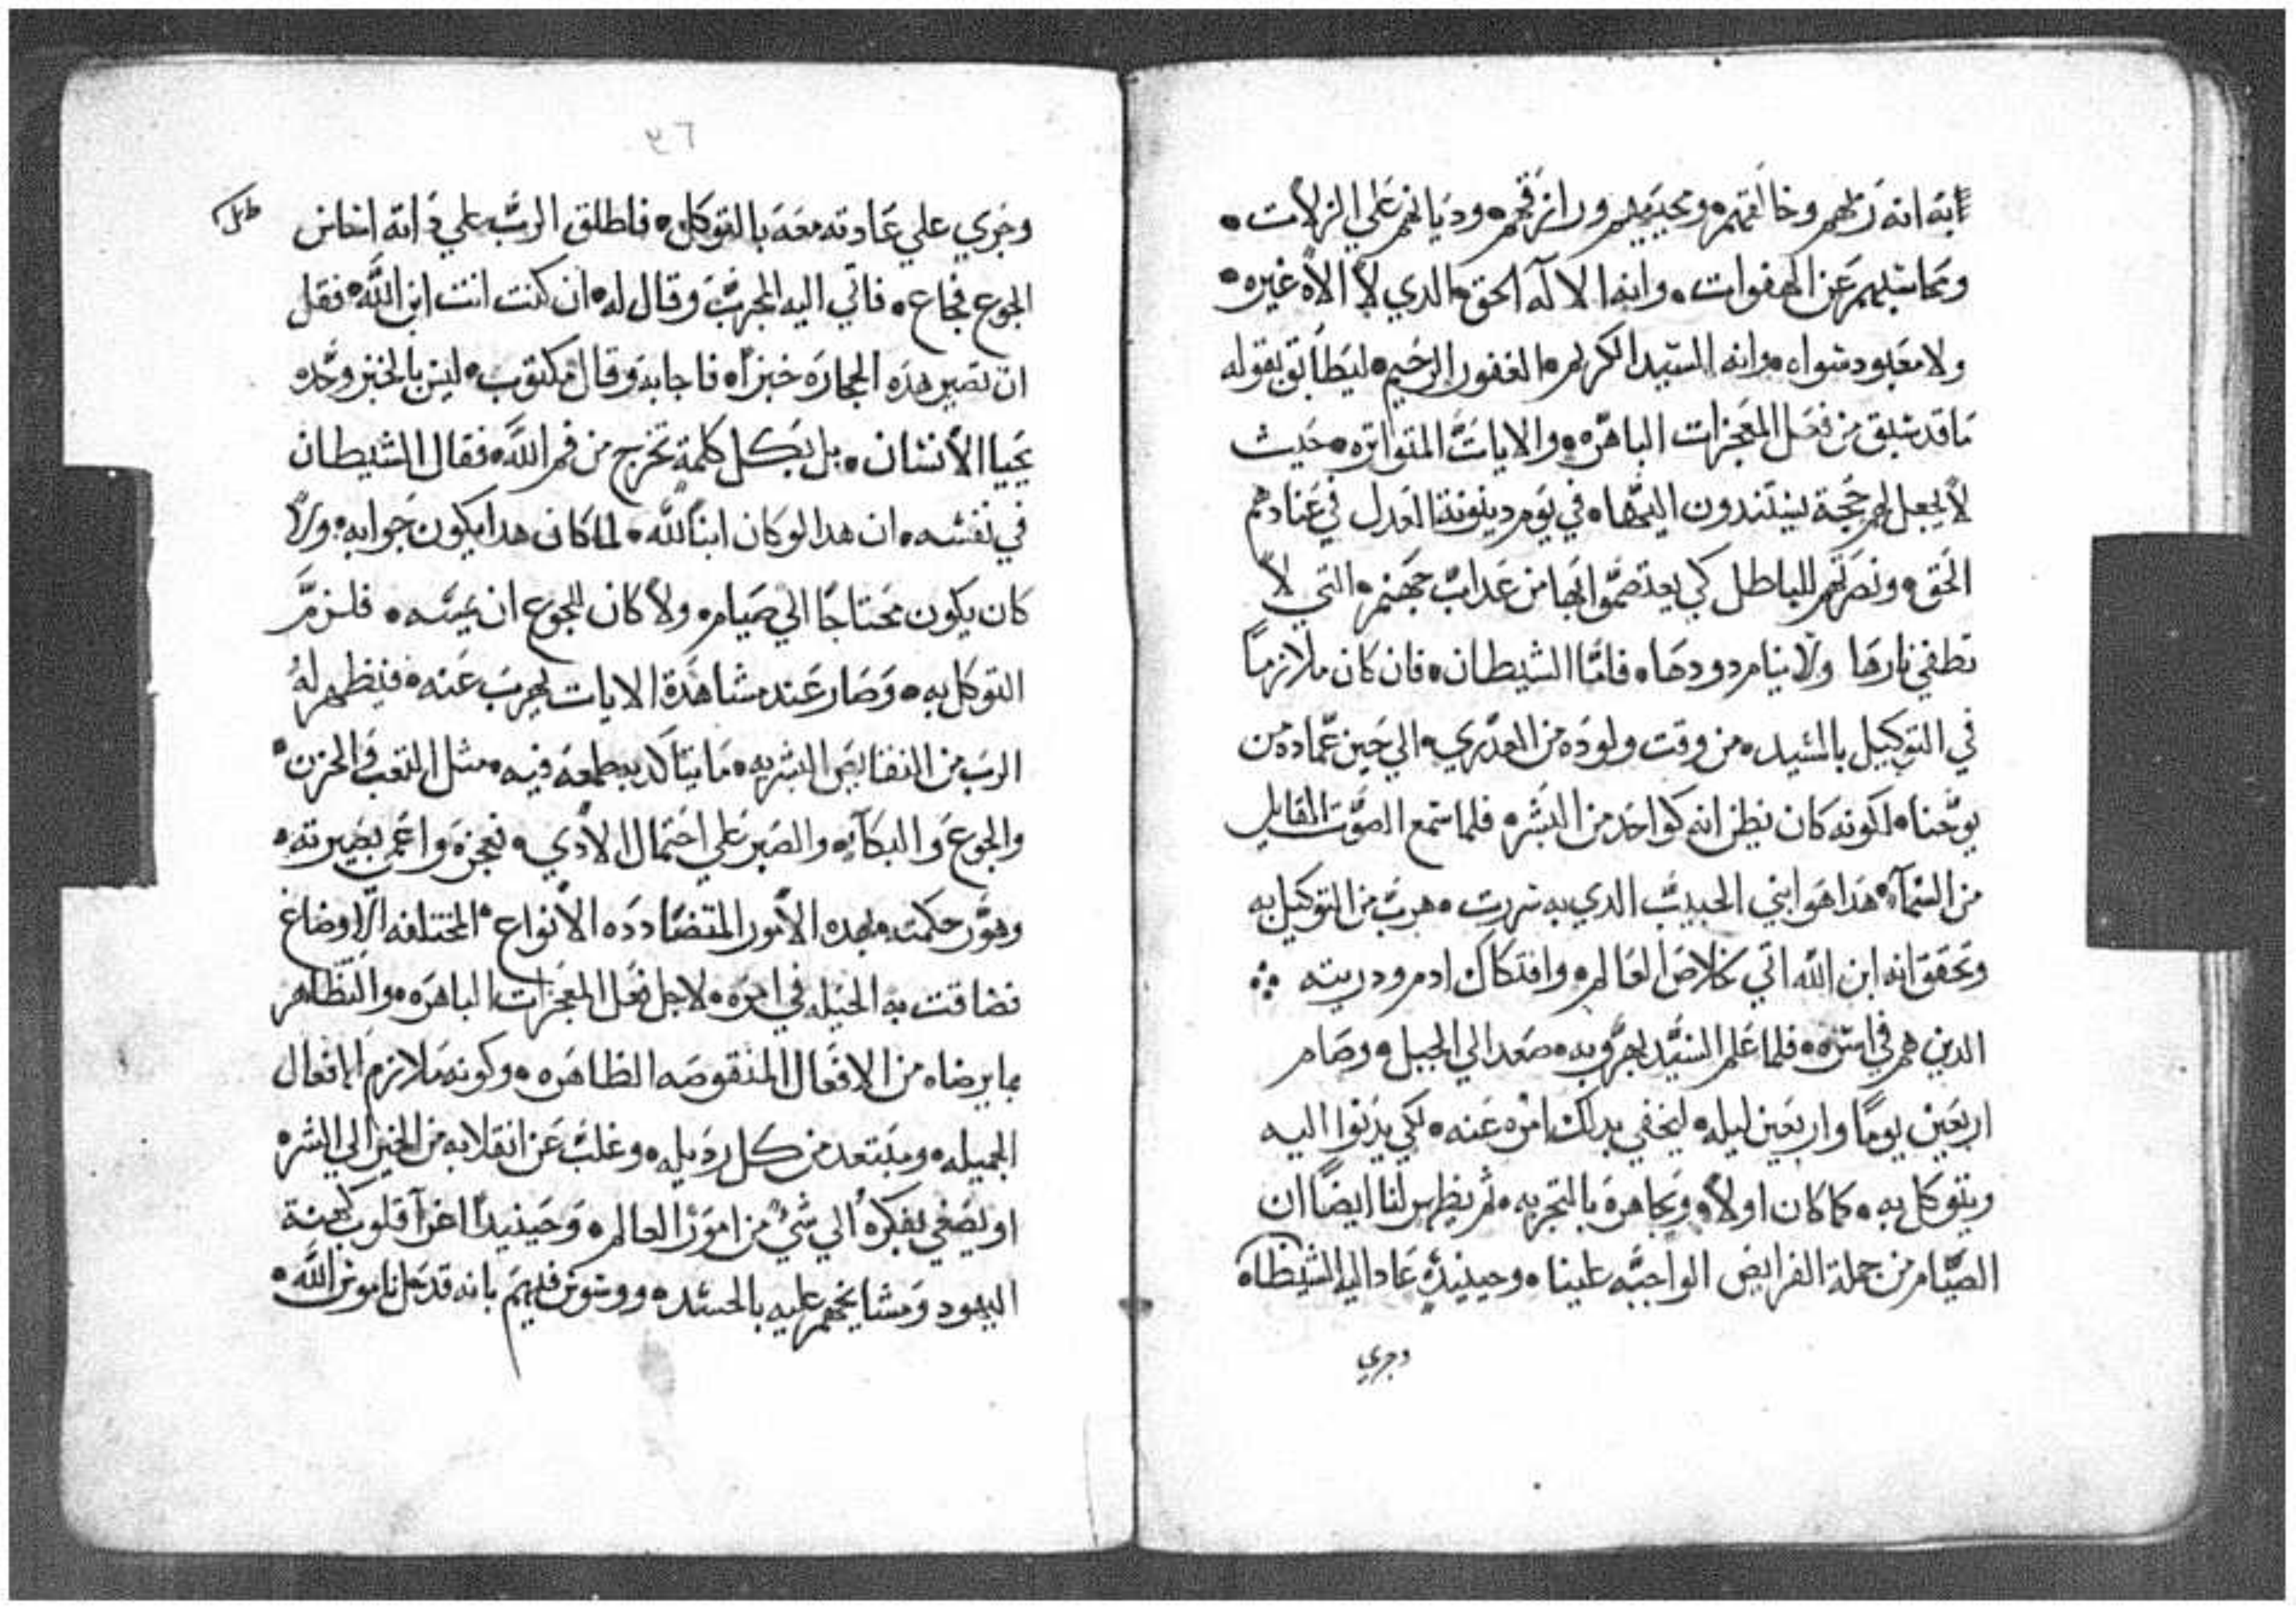 ابه انه ربهم وخالقهم ومجربهم ورازقهم ودیانهم علي الزلات •
ومحاسبهم عن الهفوات • وانه الالآه الحق • الدي لا الاه غيره •
ولا معبود سواه • وانه السيد الكريم • الغفور الرحيم • ليطابق بقوله
ما قد سبق من فعل المعجزات الباهره • والايات المتواتره • حيث
لا يجعل لهم حجة يستندون اليها • في يوم دينونة العدل في عنادهم
الحق • ونصرتهم للباطل كي يعتصموا بها من عداب جهنم • التي لا
تطفي نارها ولا ينام دودها • فاما الشيطان • فان كان ملازمًا
في التوكيل بالسيد • من وقت ولوده من العدري • الي حين عماده من
يوحنا • لكونه كان يظن انه كواحد من البشر • فلما استمع الصوت القايل
من السمآء • هدا هو ابني الحبيب الدي به سررت • هرب من التوكيل به
وتحقق انه ابن الله اتي لخلاص العالم • وافتكاك ادم ودريته ∴
الدين هم في اسره • فلما علم السيد بهروبه • صعد الي الجبل • وصام
اربعين يومًا واربعين ليله • ليخفي بدلك امره عنه • لكي يدنوا اليه
ويتوكل به • كما كان اولاً • ويجاهره بالتجربه • ثم يظهر لنا ايضًا ان
الصيام من جملة الفرايض الواجبه علينا • وحينيدٍ عاد اليه الشيطان
وجري
٣٦
وجري علي عادته معه بالتوكل • فاطلق الرب علي داته احاس
الجوع فجاع • فاتي اليه المجرب وقال له • ان كنت انت ابن الله • فقل
ان تصير هده الحجاره خبزًا • فاجابه وقال مكتوب • ليس بالخبز وحده
يحيا الانسان • بل بكل كلمة تخرج من فم الله • فقال الشيطان
في نفسه • ان هدا لو كان ابنًا لله • لما كان هدا يكون جوابه • ولا
كان يكون محتاجًا الي صيام • ولا كان للجوع ان يمسه • فلزم
التوكل به • وصار عند مشاهدة الايات يهرب عنه • فيظهر له
الرب من النقايص البشريه • ما يتاكد به طمعه فيه • مثل التعب والحزن •
والجوع والبكآء • والصبر علي احتمال الادي • فعجزه واعمي بصيرته •
وهور حكمته • بهده الامور المتضادده الانواع • المختلفه الاوضاع
فضاقت به الحيله في امره • لاجل فعل المعجزات الباهره • والتظاهر
بما يرضاه من الافعال المنقوصه الظاهره • وكونه ملازم الافعال
الجميله • ومبتعد من كل رديله • وغلب عن انقلابه من الخير الي الشر •
او يصغي بفكره الي شيء من امور العالم • وحينيدٍ اغرا قلوب كهنة
اليهود ومشايخهم عليه بالحسد • ووسوس فيهم بانه قد حل ناموس الله •